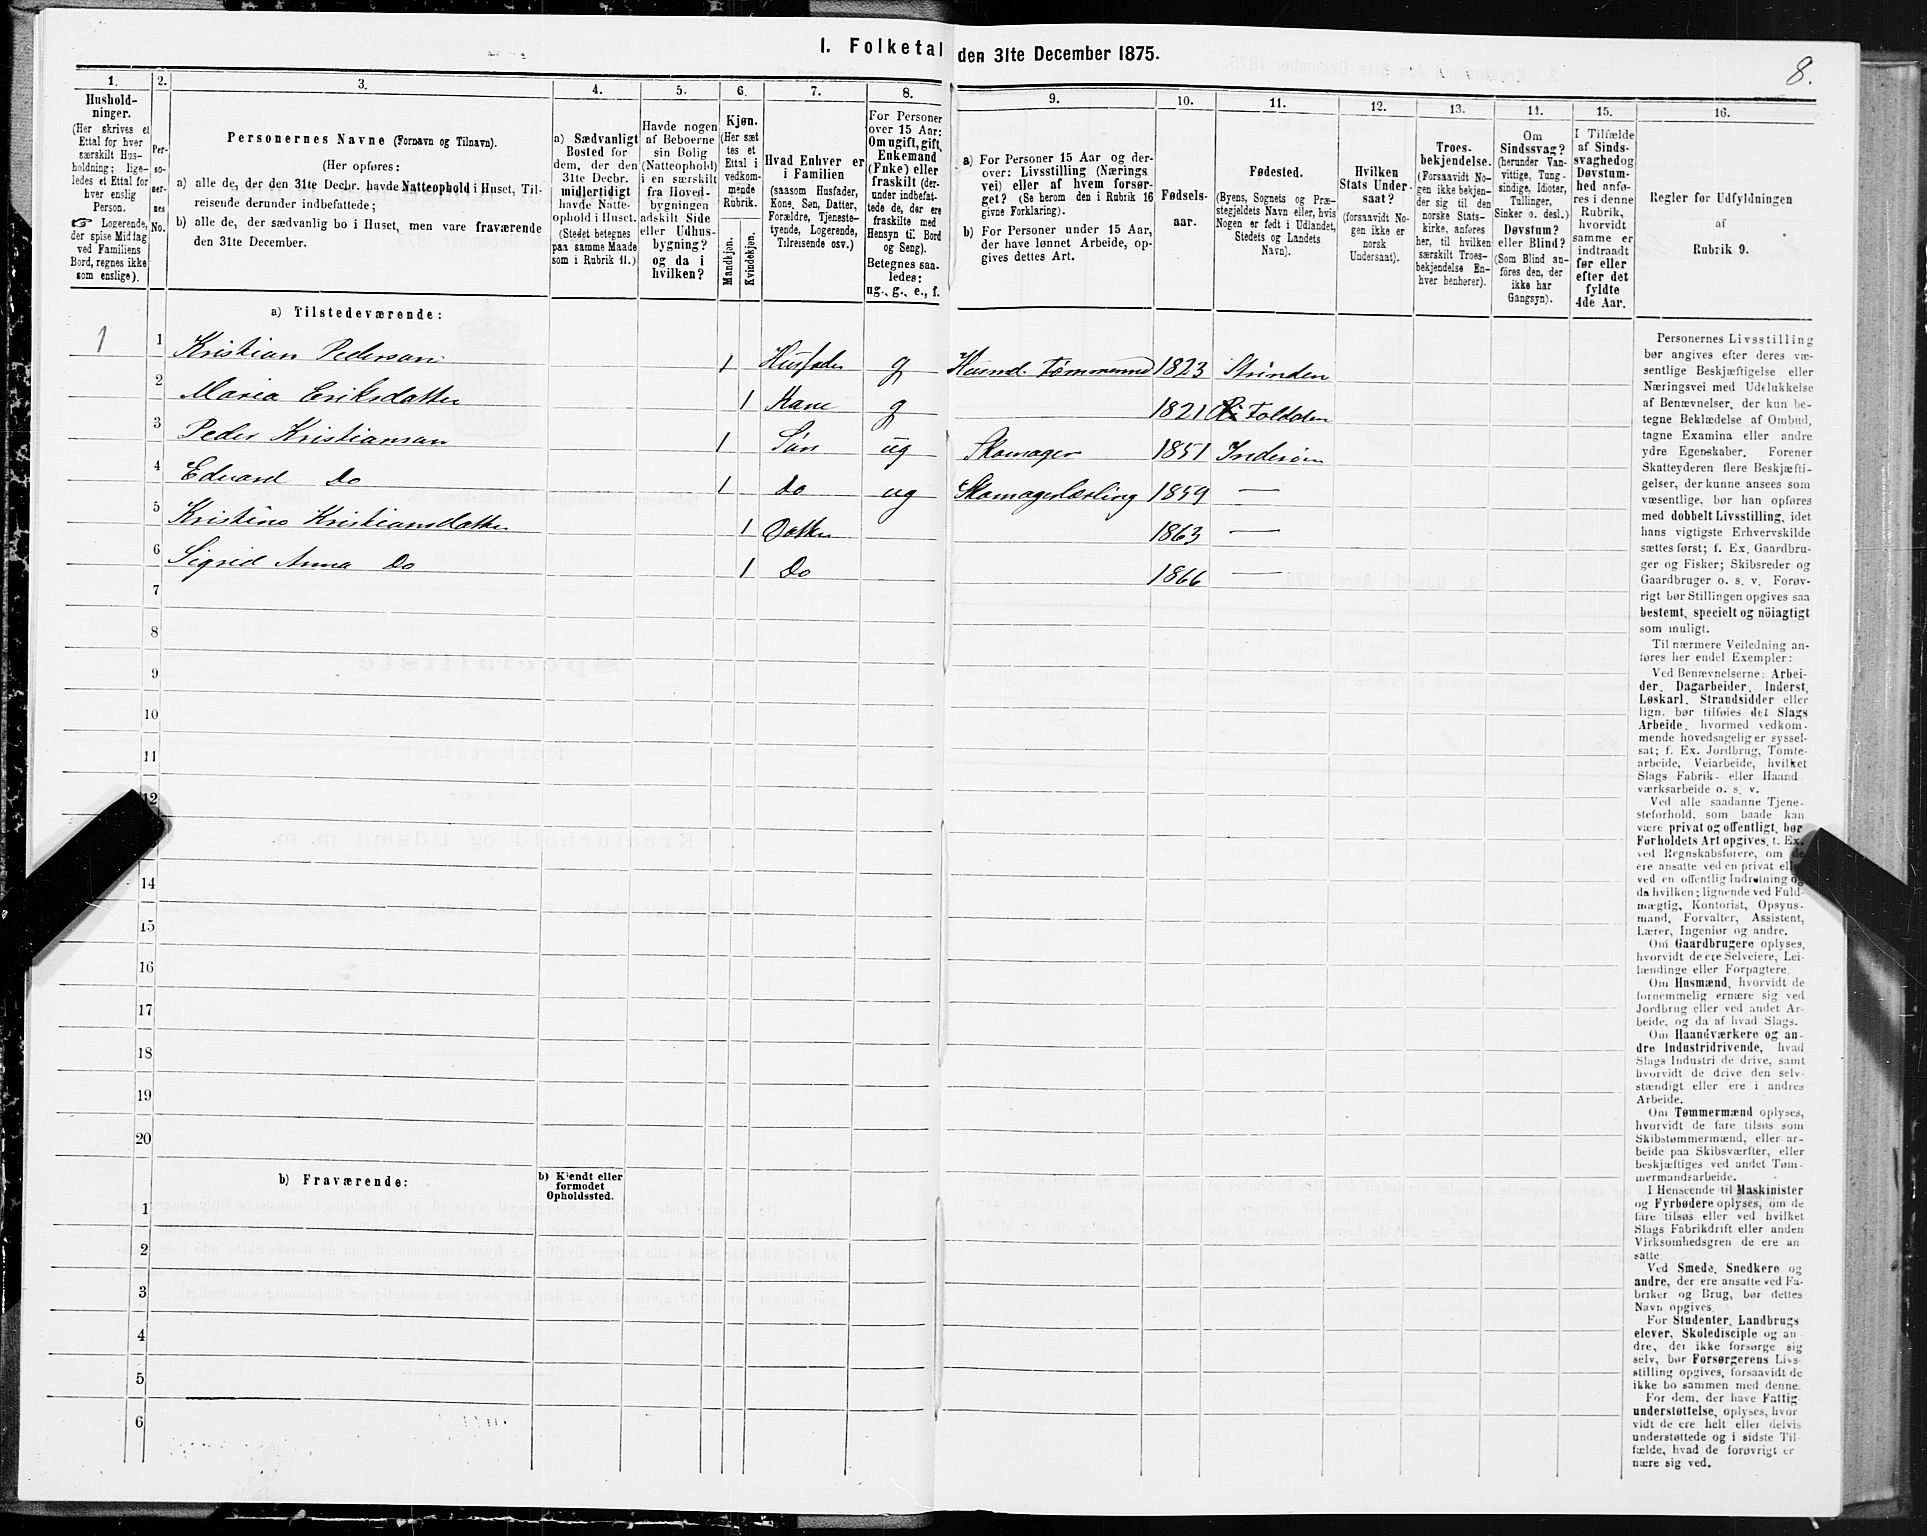 I. Folketal den 31te December 1875.
8.
1.
Hushold-
ninger.
(Her skrives et
Ettal for hver
særskilt Hus-
holdning; lige-
ledes et Ettal for
hver enslig
Person.
☞ Logerende,
der spise Middag
ved Familiens
Bord, regnes ikke
som enslige).
2.
Per-
soner-
nes
No.
3.
Personernes Navne (Fornavn og Tilnavn).
(Her opføres:
a) alle de, der den 31te Decbr. havde Natteophold i Huset, Til-
reisende derunder indbefattede;
b) alle de, der sædvanlig bo i Huset, men vare fraværende
den 31te December.
4.
a) Sædvanligt
Bosted for
dem, der den
31te Decbr.
midlertidigt
havde Natte-
ophold i Huset.
(Stedet betegnes
paa samme Maade
som i Rubrik 11.)
5.
Havde nogen
af Beboerne
sin Bolig
(Natteophold)
i en særskilt
fra Hoved-
bygningen
adskilt Side
eller Udhus-
bygning?
og da i
hvilken?
6.
Kjøn.
(Her sæt
tes et
Ettal i
vedkom-
mende
Rubrik.
Mandkjøn.
Kvindekjøn.
7.
Hvad Enhver er
i Familien
(saasom Husfader,
Kone, Søn, Datter,
Forældre, Tjeneste-
tyende, Logerende,
Tilreisende osv.)
8.
For Personer
over 15 Aar:
Om ugift, gift,
Enkemand
(Enke) eller
fraskilt (der-
under indbefat-
tede de, der ere
fraskilte med
Hensyn til Bord
og Seng).
Betegnes saa-
ledes:
ug., g., e., f.
9.
a) For Personer 15 Aar og der-
over: Livsstilling (Nærings
vei) eller af hvem forsør-
get? (Se herom den i Rubrik 16
givne Forklaring).
b) For Personer under 15 Aar,
der have lønnet Arbeide, op-
gives dettes Art.
10.
Fødsels-
aar.
11.
Fødested.
(Byens, Sognets og Præ-
stegjeldets Navn eller, hvis
Nogen er født i Udlandet,
Stedets og Landets
Navn).
12.
Hvilken
Stats Under-
saat?
(forsaavidt No-
gen ikke er
norsk
Undersaat).
13.
Troes-
bekjendelse.
(Forsaavidt No-
gen ikke bekjen-
der sig til den
norske Stats-
kirke, anføres
her, til hvilken
særskilt Troes-
bekjendelse En-
hver henhører).
14.
Om
Sindssvag?
(herunder Van-
vittige, Tung-
sindige, Idioter,
Tullinger,
Sinker o. desl.)
Døvstum?
eller Blind?
(Som Blind an-
føres den, der
ikke har
Gangsyn).
15.
I Tilfælde
af Sinds-
svaghed og
Døvstum-
hed anfø-
res i denne
Rubrik,
hvorvidt
samme er
indtraadt
før eller
efter det
fyldte
4de Aar.
16.
Regler for Udfyldningen
af
Rubrik 9.
a) Tilstedeværende:
1 1 Kristian Pedersen 1 Husfader g Husmd. Tømmermd 1823 Strinden
2 Maria Eriksdatter 1 Kone g 1821 Foldden
3 Peder Kristiansen 1 Søn ug Skomager 1851 Inderøen
4 Edvard Do 1 Do ug Skomagerlærling 1859 —
5 Kristine Kristiansdatter 1 Datter 1863 —
6 Sigrid Anna Do 1 Do 1866 —
7
8
9
10
11
12
14
15
16
17
18
19
20
b) Fraværende:
b) Kjendt eller
formodet
Opholdssted.
1
2
3
4
5
6
Personernes Livsstilling
bør angives efter deres væ-
sentlige Beskjæftigelse eller
Næringsvei med Udelukkelse
af Benævnelser, der kun be-
tegne Beklædelse af Ombud,
tagne Examina eller andre
ydre Egenskaber. Forener
Skatteyderen flere Beskjæfti-
gelser, der kunne ansees som
væsentlige, bør han opføres
med dobbelt Livsstilling, idet
hans vigtigste Erhvervskilde
sættes først; f. Ex. Gaardbru-
ger og Fisker; Skibsreder og
Gaardbruger o. s. v. Forøv-
rigt bør Stillingen opgives saa
bestemt, specielt og nöiagtigt
som muligt.
Til nærmere Veiledning an-
føres her endel Exempler:
Ved Benævnelserne: Arbei-
der, Dagarbeider, Inderst,
Løskarl, Strandsidder eller
lign. bør tilføies det Slags
Arbeide, hvormed vedkom-
mende hovedsagelig er syssel-
sat; f. Ex. Jordbrug, Tomte-
arbeide, Veiarbeide, hvilket
Slags Fabrik- eller Haand
værksarbeide o. s. v.
Ved alle saadanne Tjene-
steforhold, som baade kan
være privat og offentligt, bør
Forholdets Art opgives, f. Ex.
ved Regnskabsførere, om de
ere ansatte ved en privat eller
ved en offentlig Indretning og
da hvilken; lignende ved Fuld-
mægtig, Kontorist, Opsyns-
mand, Forvalter, Assistent,
Lærer, Ingeniør og andre.
Om Gaardbrugere oplyses,
hvorvidt de ere Selveiere, Lei-
lændinge eller Forpagtere.
Om Husmænd, hvorvidt de
fornemmelig ernære sig ved
Jordbrug eller ved andet Ar-
beide, og da af hvad Slags.
Om Haandværkere og an-
dre Industridrivende, hvad
Slags Industri de drive, samt
hvorvidt de drive den selv-
stændigt eller ere i andres
Arbeide.
Om Tømmermænd oplyses,
hvorvidt de fare tilsøs som
Skibstømmermænd, eller ar-
beide paa Skibsværfter, eller
beskjæftiges ved andet Tøm-
mermandsarbeide.
I Henseende til Maskinister
og Fyrbødere oplyses, om de
fare tilsøs eller ved hvilket
Slags Fabrikdrift eller anden
Virksomhedsgren de ere an-
satte.
Ved Smede, Snedkere og
andre, der ere ansatte ved Fa-
briker og Brug, bør dettes
Navn opgives.
For Studenter, Landbrugs
elever, Skoledisciple og an-
dre, der ikke forsørge sig
selv, bør Forsørgerens Livs-
stilling opgives, forsaavidt de
ikke bo sammen med denne.
For dem, der have Fattig-
understøttelse, oplyses, hvor
vidt de ere helt eller delvis
understøttede og i sidste Til-
fælde, hvad de forøvrigt er
nære sig ved.